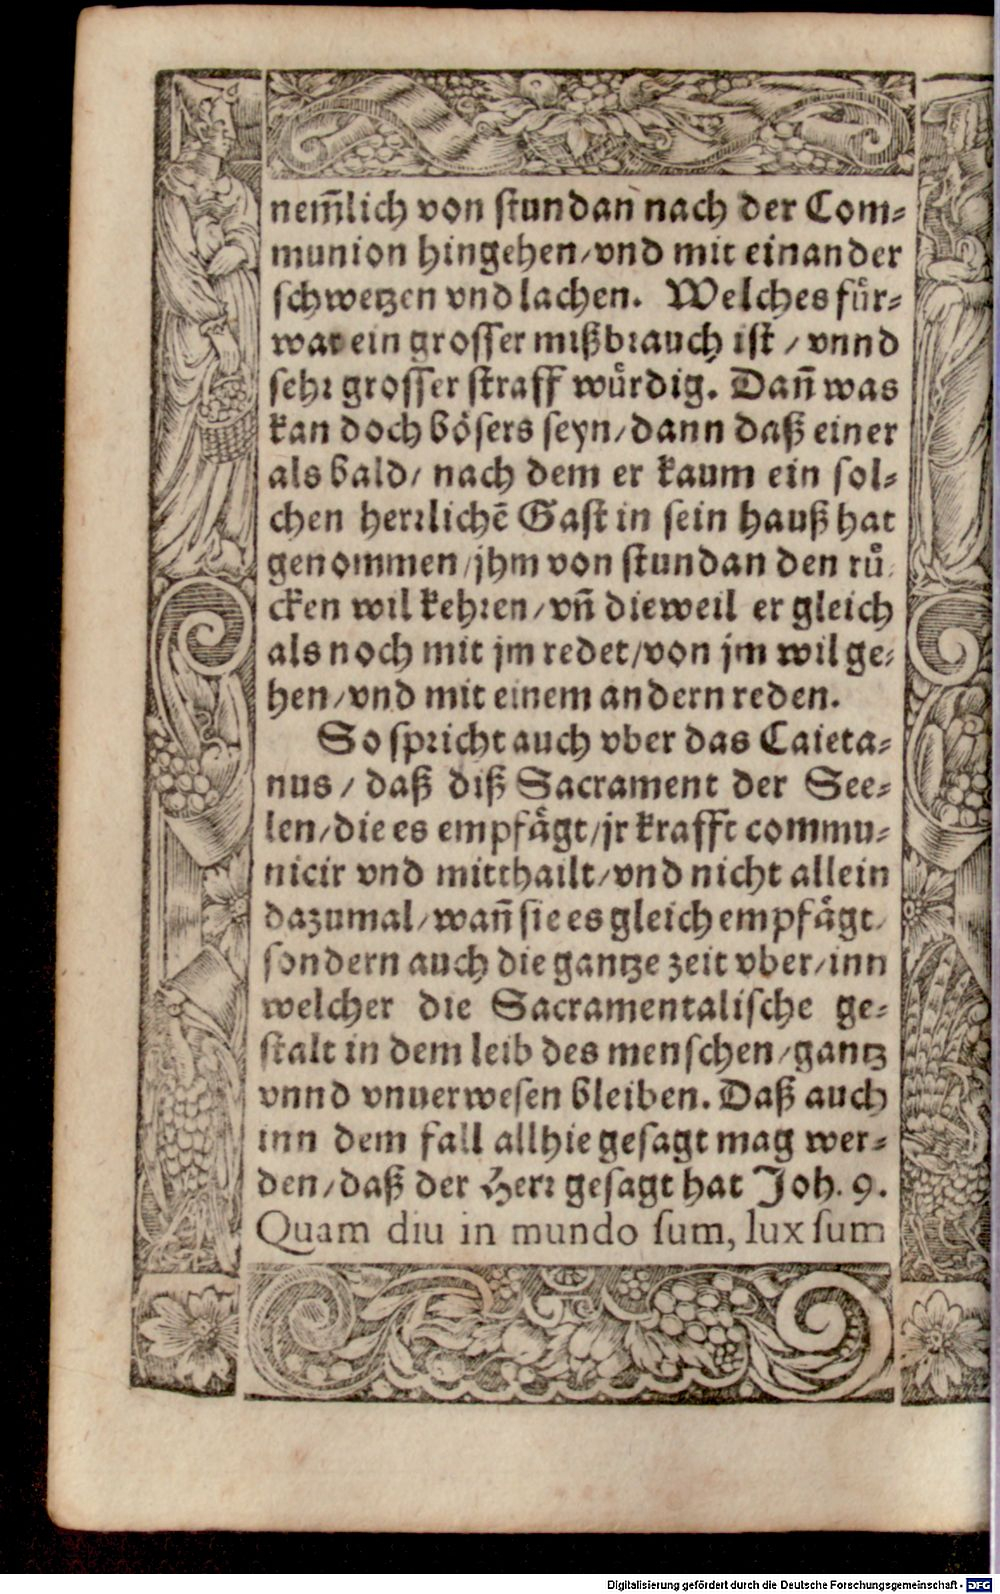 nem̄lich von stundan nach der Com⸗
munion hingehen/vnd mit einander
schwetzen vnd lachen. Welches fuͤr⸗
war ein grosser mißbrauch ist / vnnd
sehr grosser straff wuͤrdig. Dan̄ was
kan doch boͤsers seyn/dann daß einer
als bald/ nach dem er kaum ein sol⸗
chen herrlichē Gast in sein hauß hat
genommen/jhm von stundan den ruͤ⸗
cken wil kehren/vn̄ dieweil er gleich
als noch mit jm redet/von jm wil ge⸗
hen/vnd mit einem andern reden.
So spricht auch vber das Caieta⸗
nus / daß diß Sacrament der See⸗
len/die es empfaͤgt/jr krafft commu⸗
nicir vnd mitthailt/vnd nicht allein
dazumal/wan̄ sie es gleich empfaͤgt/
sondern auch die gantze zeit vber/inn
welcher die Sacramentalische ge⸗
stalt in dem leib des menschen/gantz
vnnd vnuerwesen bleiben. Daß auch
inn dem fall allhie gesagt mag wer⸗
den/daß der Herr gesagt hat Joh. 9.
Quam diu in mundo sum, lux sum
Digitalisierung gefördert durch die Deutsche Forschungsgemeinschaft - DFG